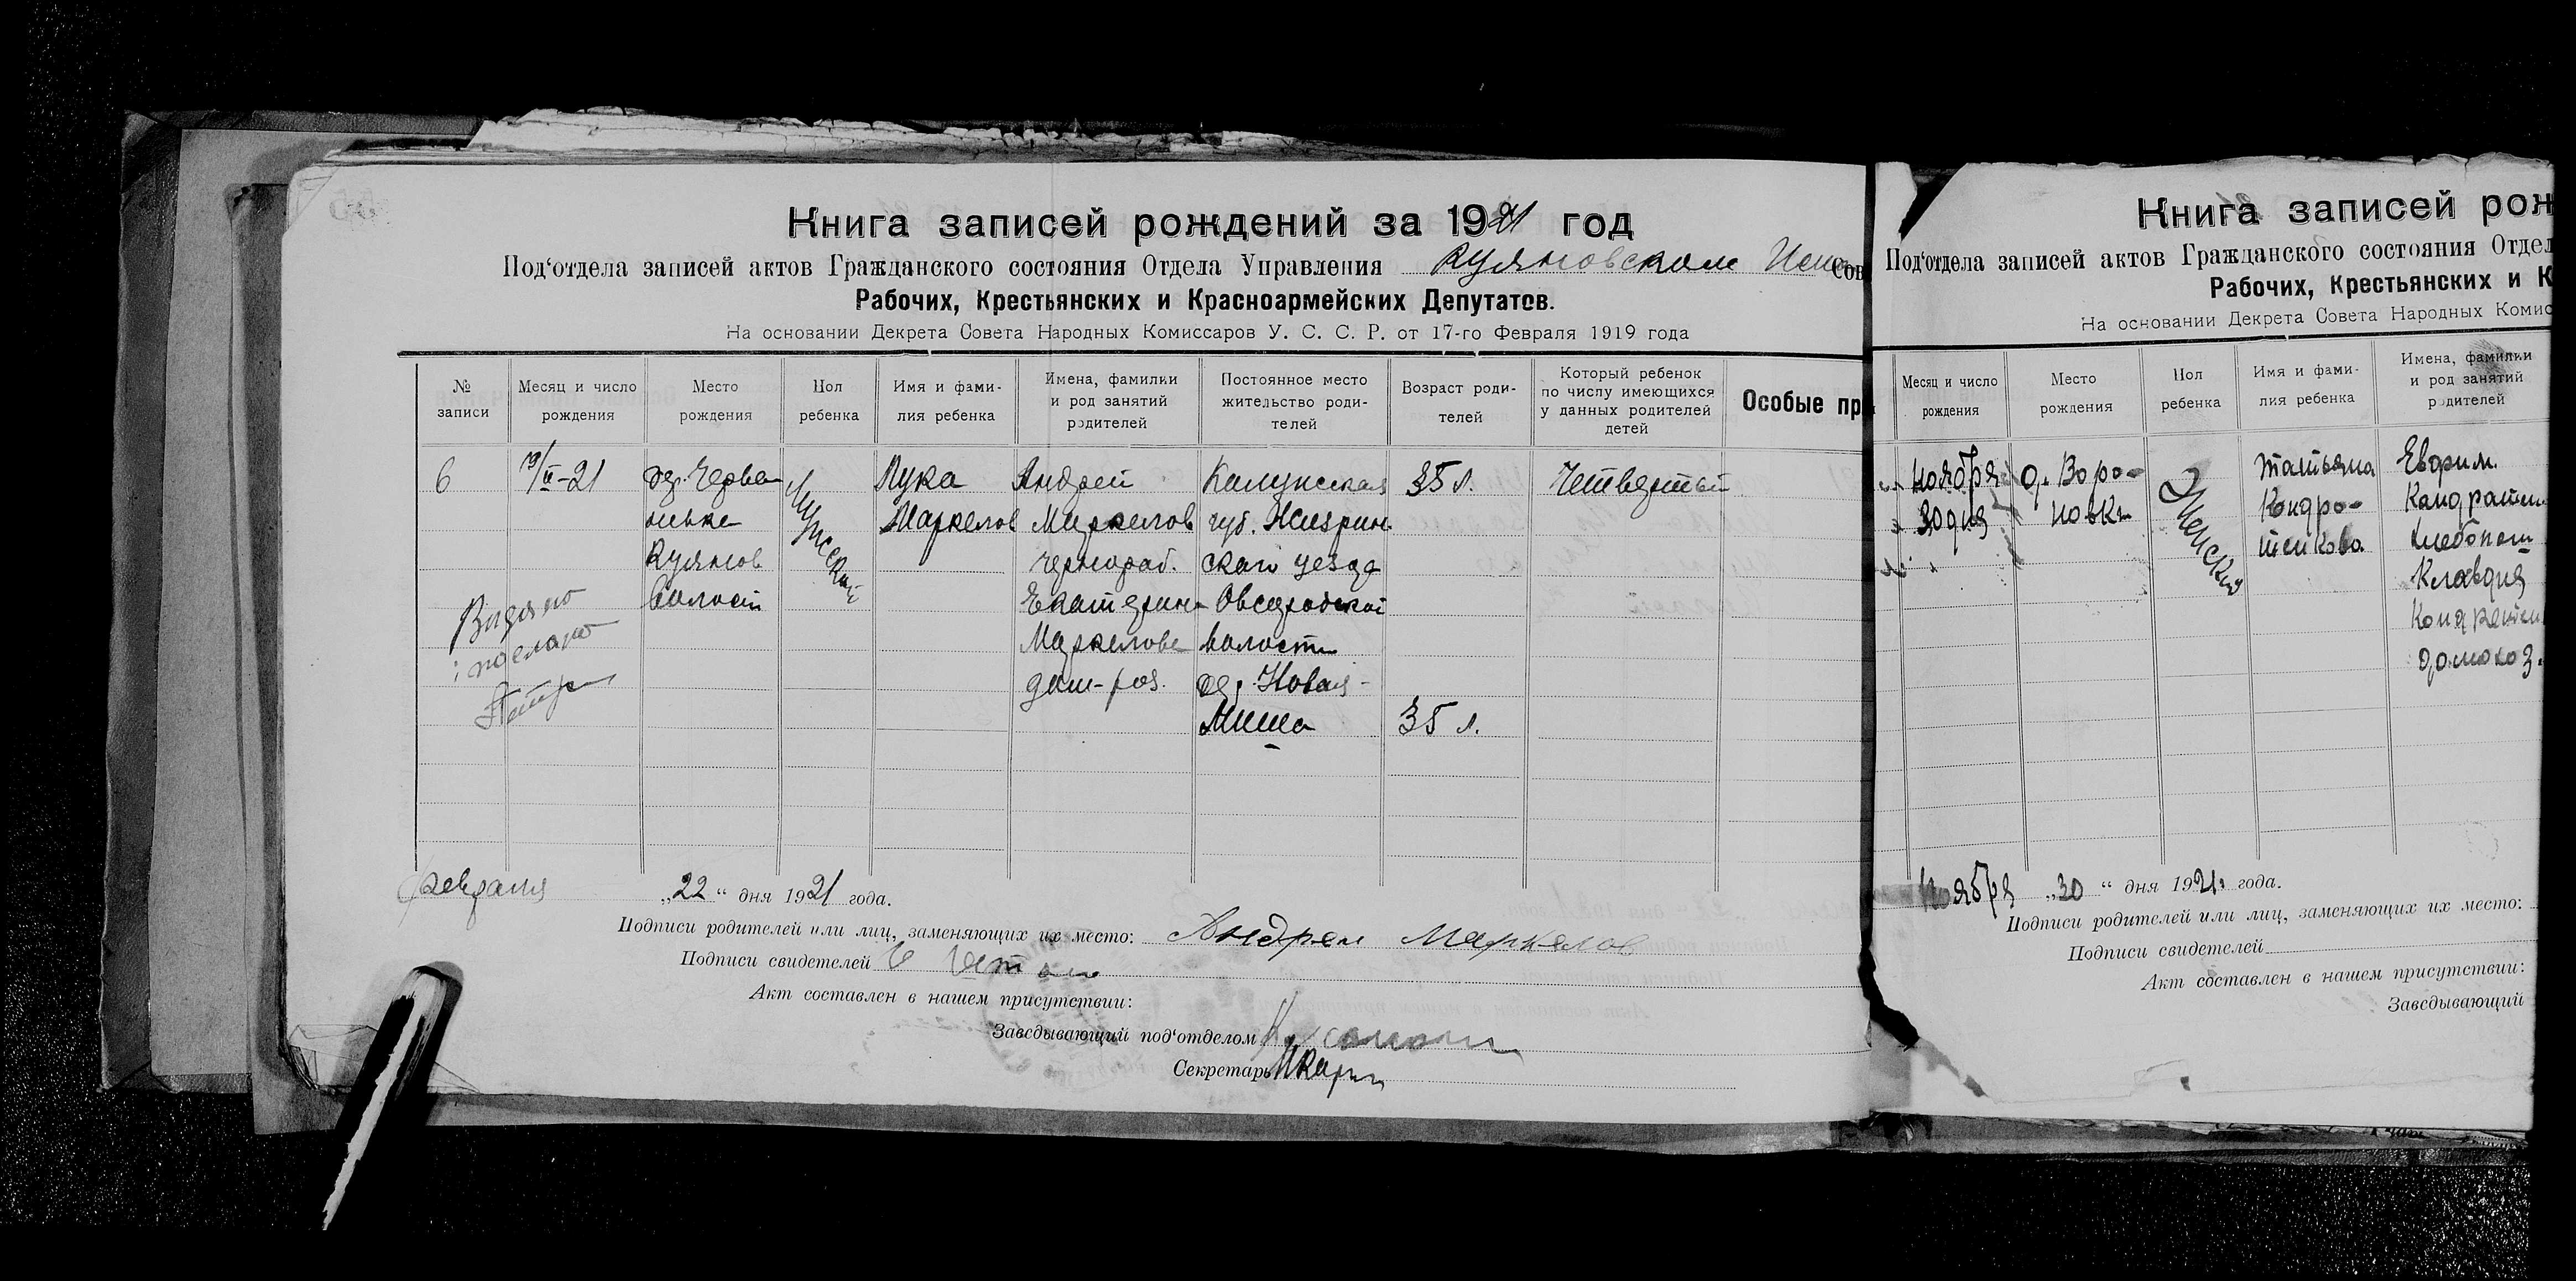 Книга записей рождений за 1921 год
Под‘отдела записей актов Гражданского состояния Отдела Управления Куяновском Сов
Рабочих, Крестьянских и Красноармейских Депутатов.
На основании Декрета Совета Народных Комиссаров У. С. С. Р. от 17-го Февраля 1919 года
№ записи
Месяц и число рождения
Место рождения
Пол ребенка
Имя и фами-
лия ребенка
Имена, фамилки
и род занятий
родителей
Постоянное место
жительство роди-
телей
Возраст роди-
телей
Который ребенок
по числу имеющихся
у данных родителей
детей
Особые при
6
19/II-21
дер. Черва
нивке
Куянов
Волости
Мужской
Лука
Маркелов
Андрей
Маркелов
чернораб.
Екатерина
Маркелова
дом-хоз.
Калужская
губ. Жиздрин-
скаго уезда
Овсородской
волости
дер. Новая-
Миша
35 л.
35 л.
Четвертый
Видано
і послано
февраля „22“ дня 1921 года.
Подписи родителей или лиц, заменяющих их место: Андрей Маркелов
Подписи свидетелей
Акт составлен в нашем присутствии:
Заведывающий под‘отделом
Секретарь
Книга записей рож
Под‘отдела записей актов Гражданского состояния Отдел
Рабочих, Крестьянских и К
На основании Декрета Совета Народных Комис
Месяц и число
рождения
Место
рождения
Пол
ребенка
Имя и фами-
лия ребенка
Имена, фамилки
и род занятий
родителей
ноября
30 дня
д. Воро-
новка
Женский
Татьяна
Кондра-
тенкова
Евфим.
Кондратен
хлебопаш
Клавдия
Кондратен
домохоз.
Ноября „30“ дня 1921. года.
Подписи родителей или лиц, заменяющих их место:
Подписи свидетелей
Акт составлен в нашем присутствии:
Заведывающий